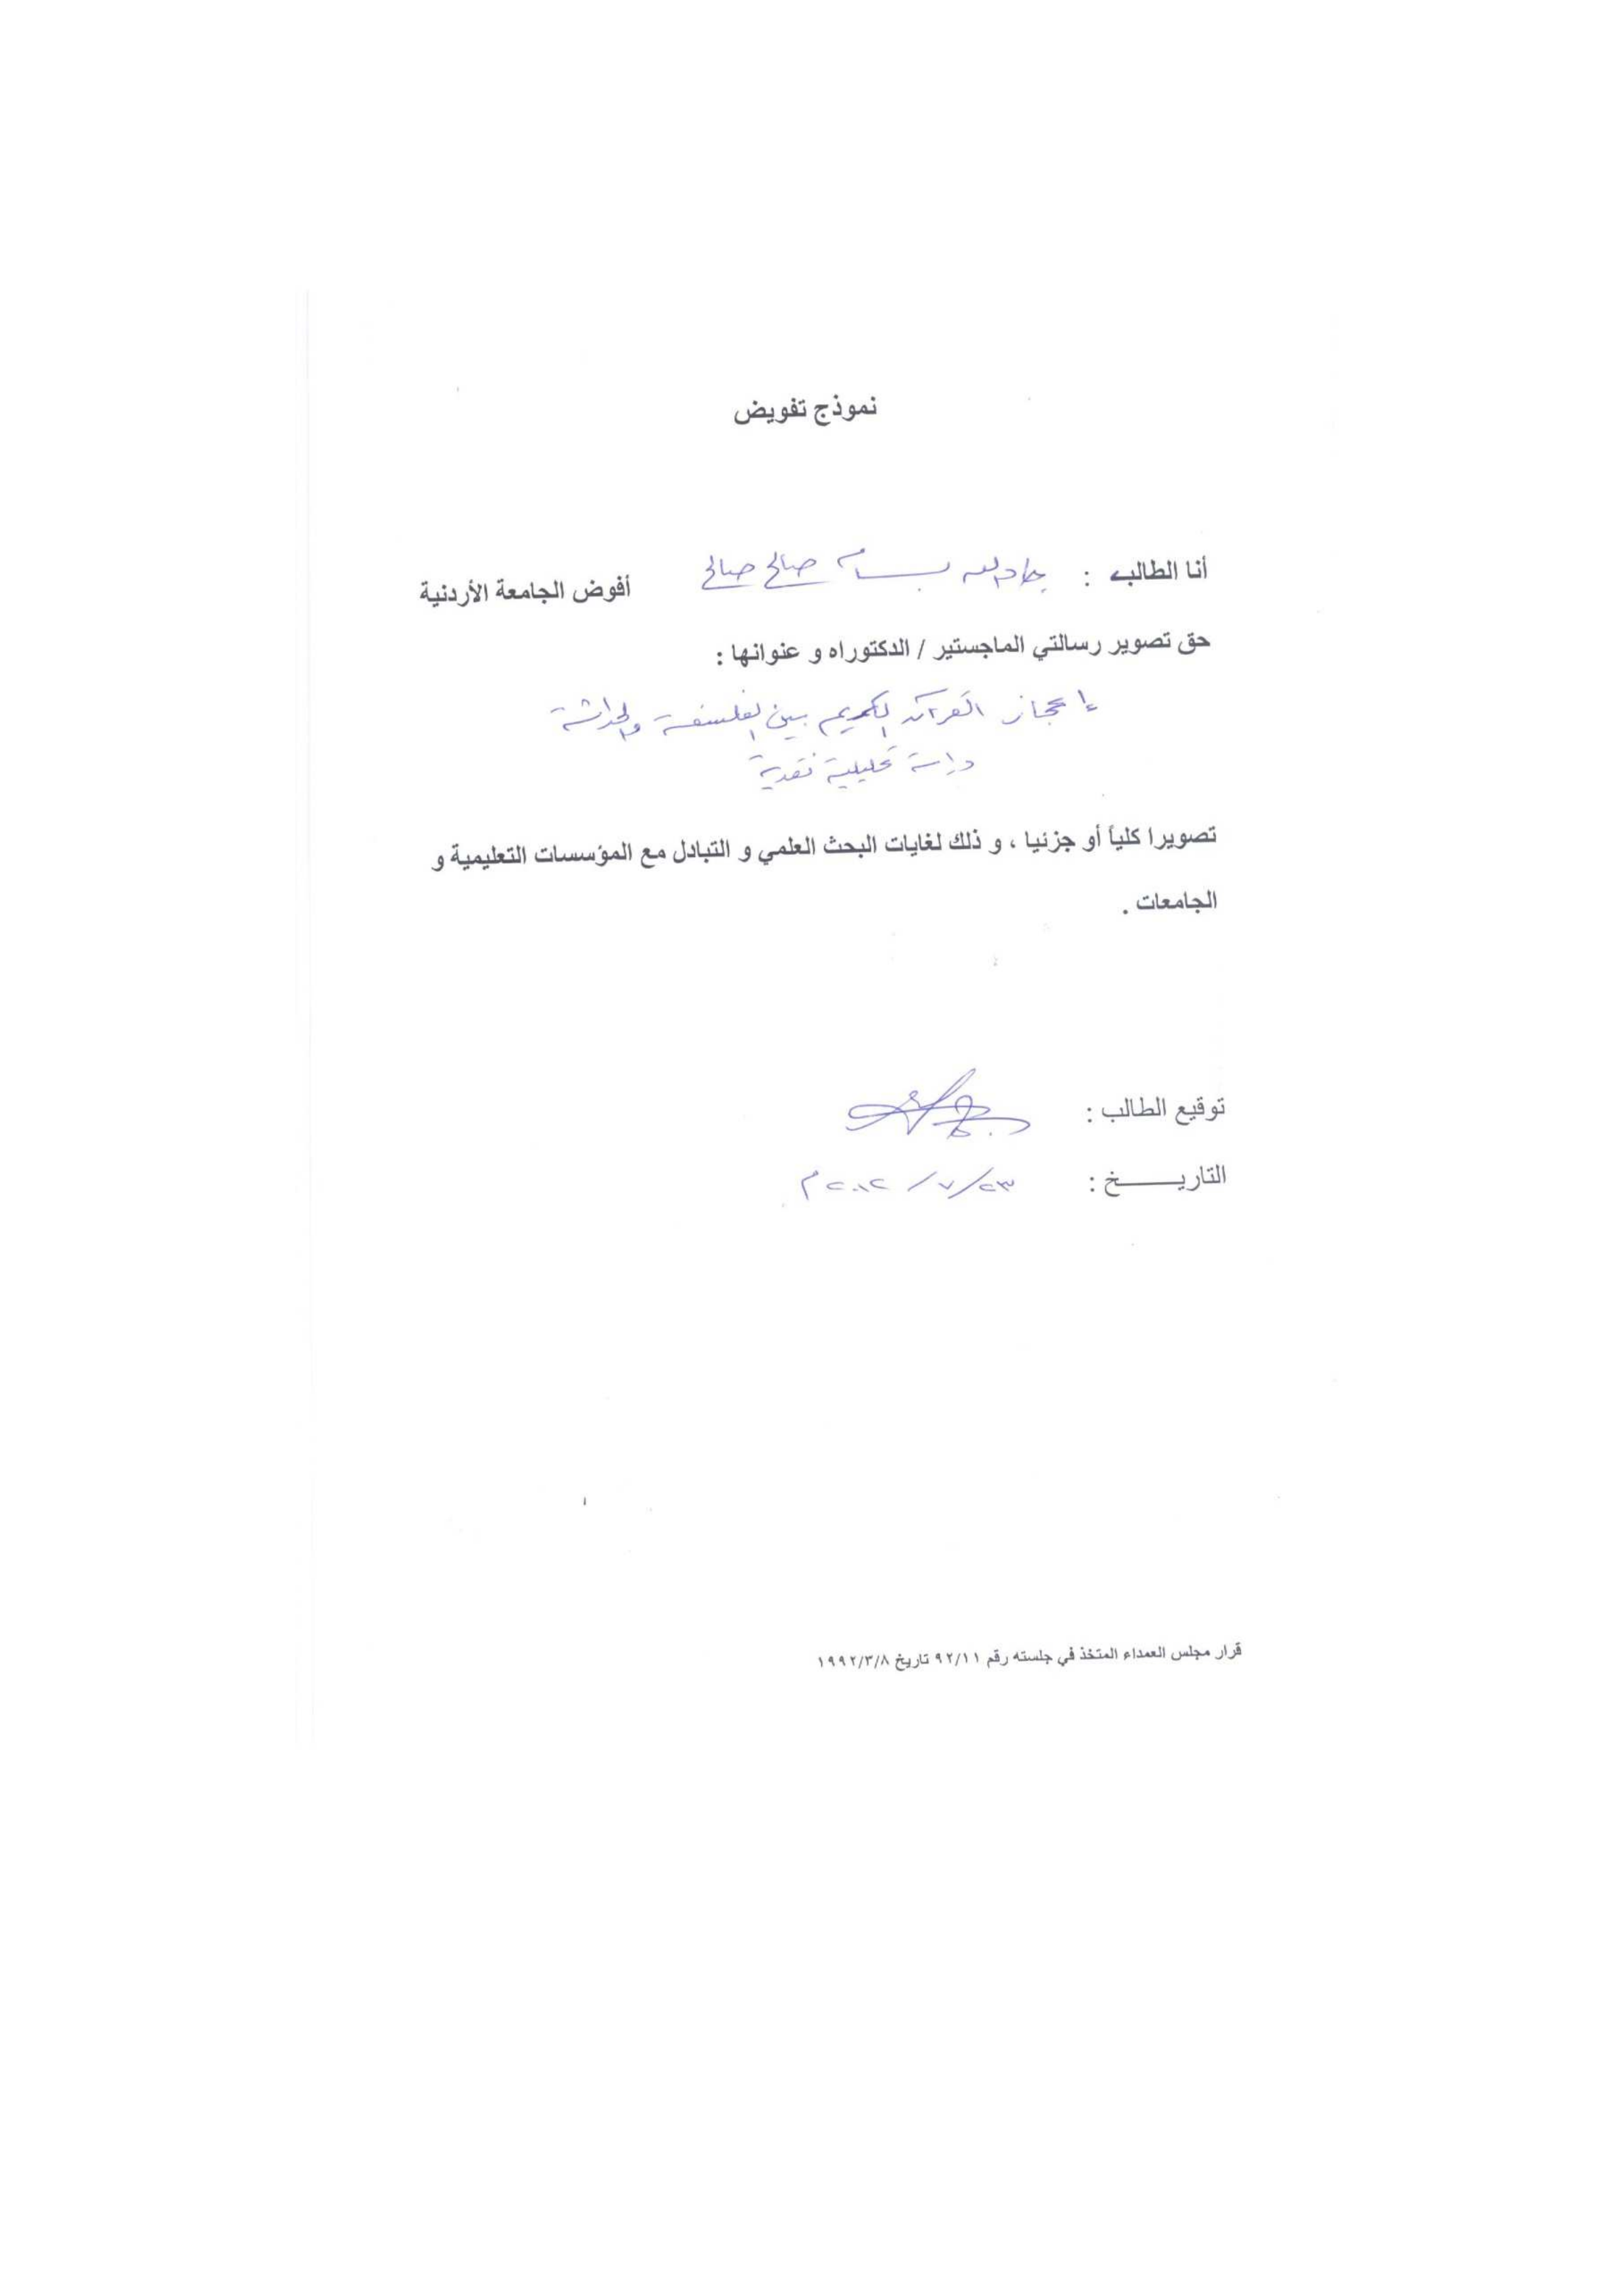 نموذج تفويض
أنا الطالب : جاد الله بسام صالح صالح أفوض الجامعة الأردنية
حق تصوير رسالتي الماجستير / الدكتوراه و عنوانها :
إعجاز القرآن الكريم بين الفلسفة والحداثة
دراسة تحليلية نقدية
تصويرا كلياً أو جزئيا ، و ذلك لغايات البحث العلمي و التبادل مع المؤسسات التعليمية و
الجامعات .
توقيع الطالب :
التاريـــــخ : ٢٣/٧/٢٠١٢م
قرار مجلس العمداء المتخذ في جلسته رقم ٩٢/١١ تاريخ ١٩٩٢/٣/٨